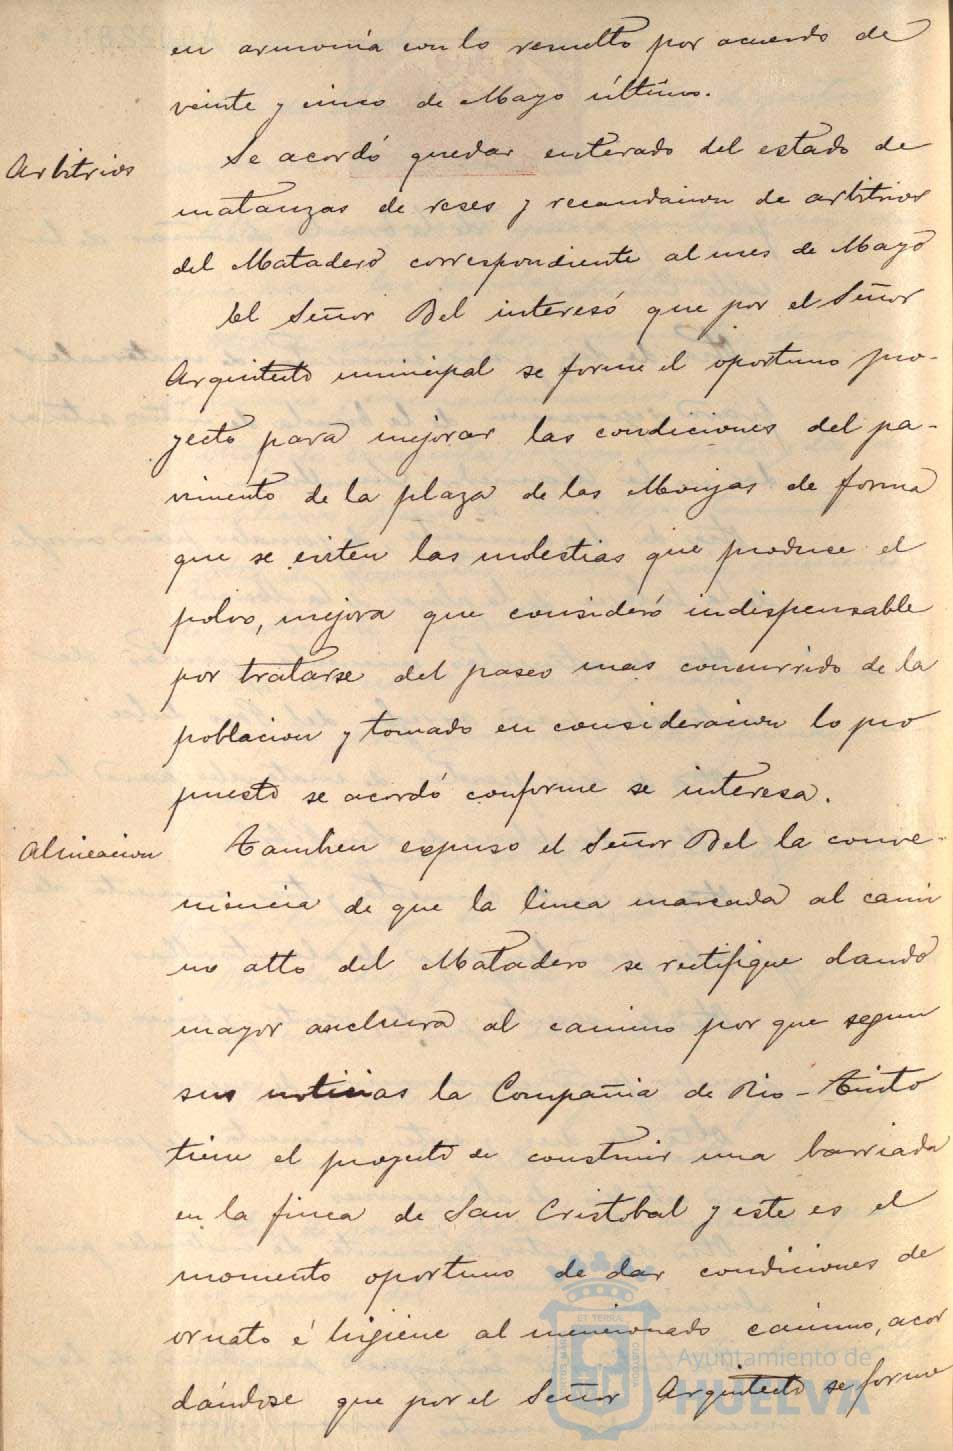 en armonia con lo resuelto por acuerdo de
veinte y cinco de Mayo último.
Arbitrios
Se acordó quedar enterado del estado de
matanzas de reses y recaudacion de arbitrios
del Matadero correspondiente al mes de Mayo
El Señor Del interesó que por el Señor
Arquitecto municipal se forme el oportuno pro-
yecto para mejorar las condiciones del pa-
vimento de la plaza de las Monjas de forma
que se eviten las molestias que produce el
polvo, mejora que consideró indispensable
por tratarse del paseo mas concurrido de la
poblacion y tomado en consideracion lo pro
puesto se acordó conforme se interesa.
Alineacion
Tambien expuso el Señor Del la conve-
niencia de que la linea marcada al cami
no alto del Matadero se rectifique dando
mayor anchura al camino por que segun
sus noticias la Compañia de Rio-Tinto
tiene el proyecto de construir una barriada
en la finca de San Cristobal y este es el
momento oportuno de dar condiciones de
ornato é higiene al mencionado camino, acor
dándose que por el Señor Arquitecto se forme
ET TERRÆ
Ayuntamiento de
HUELVA